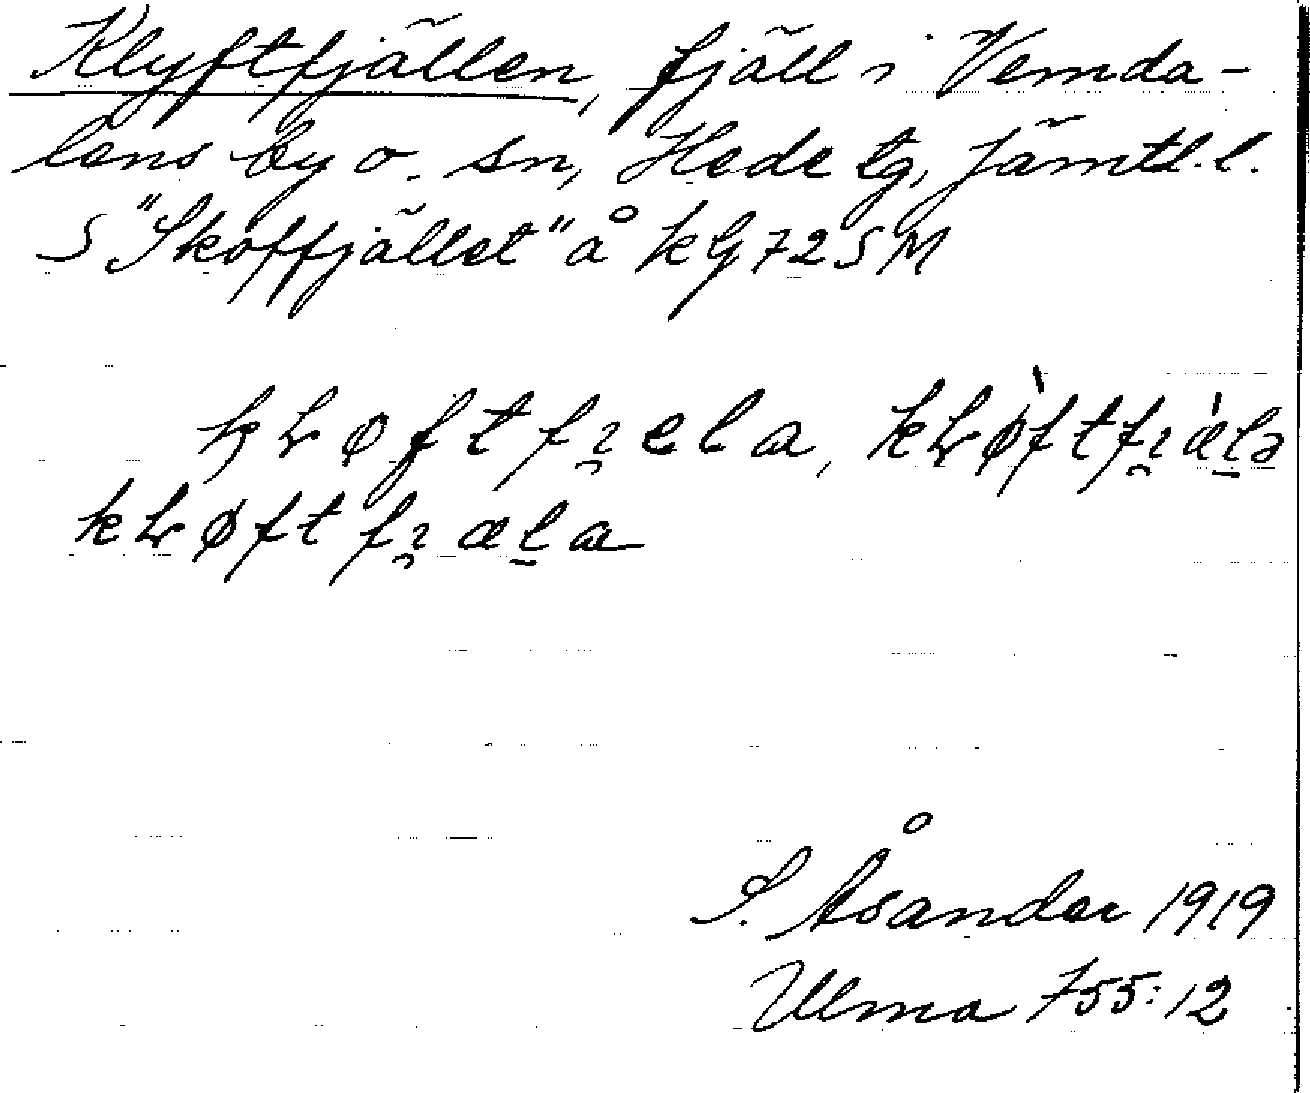 Klyftfjällen, fjäll i Vemda-
lens by o. sn, Hede tg, Jämtl. l.
S "Skoffjället" å kG 72 S M
kɽøftfɪ̯ela, kɽø̀ftfɪ̯æ̀l̠ə
kɽøftfɪ̯æl̠a
S. Åsander 1919
Ulma 755:12